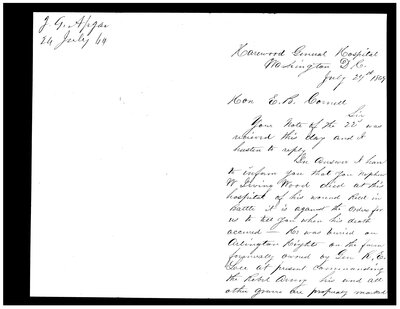 J. Geo Apgar
24 July 64
Harewood General Hospital
Washington D.C.
July 24th 1864
Hon E. B. Cornell
Sir
Your Note of the 22d was
recieved this day and I
hasten to reply
In Answer I have
to inform you that your Nephew
W Irving Wood died at this
hospital of his wound Recd in
battle it is against the Orders for
us to tell you when his death
accured — He was buried on
Arlington Hights on the farm
formerally owned by Gen R. E.
Lee at present Commanding
the Rebel Army his and all
other graves are properly marked